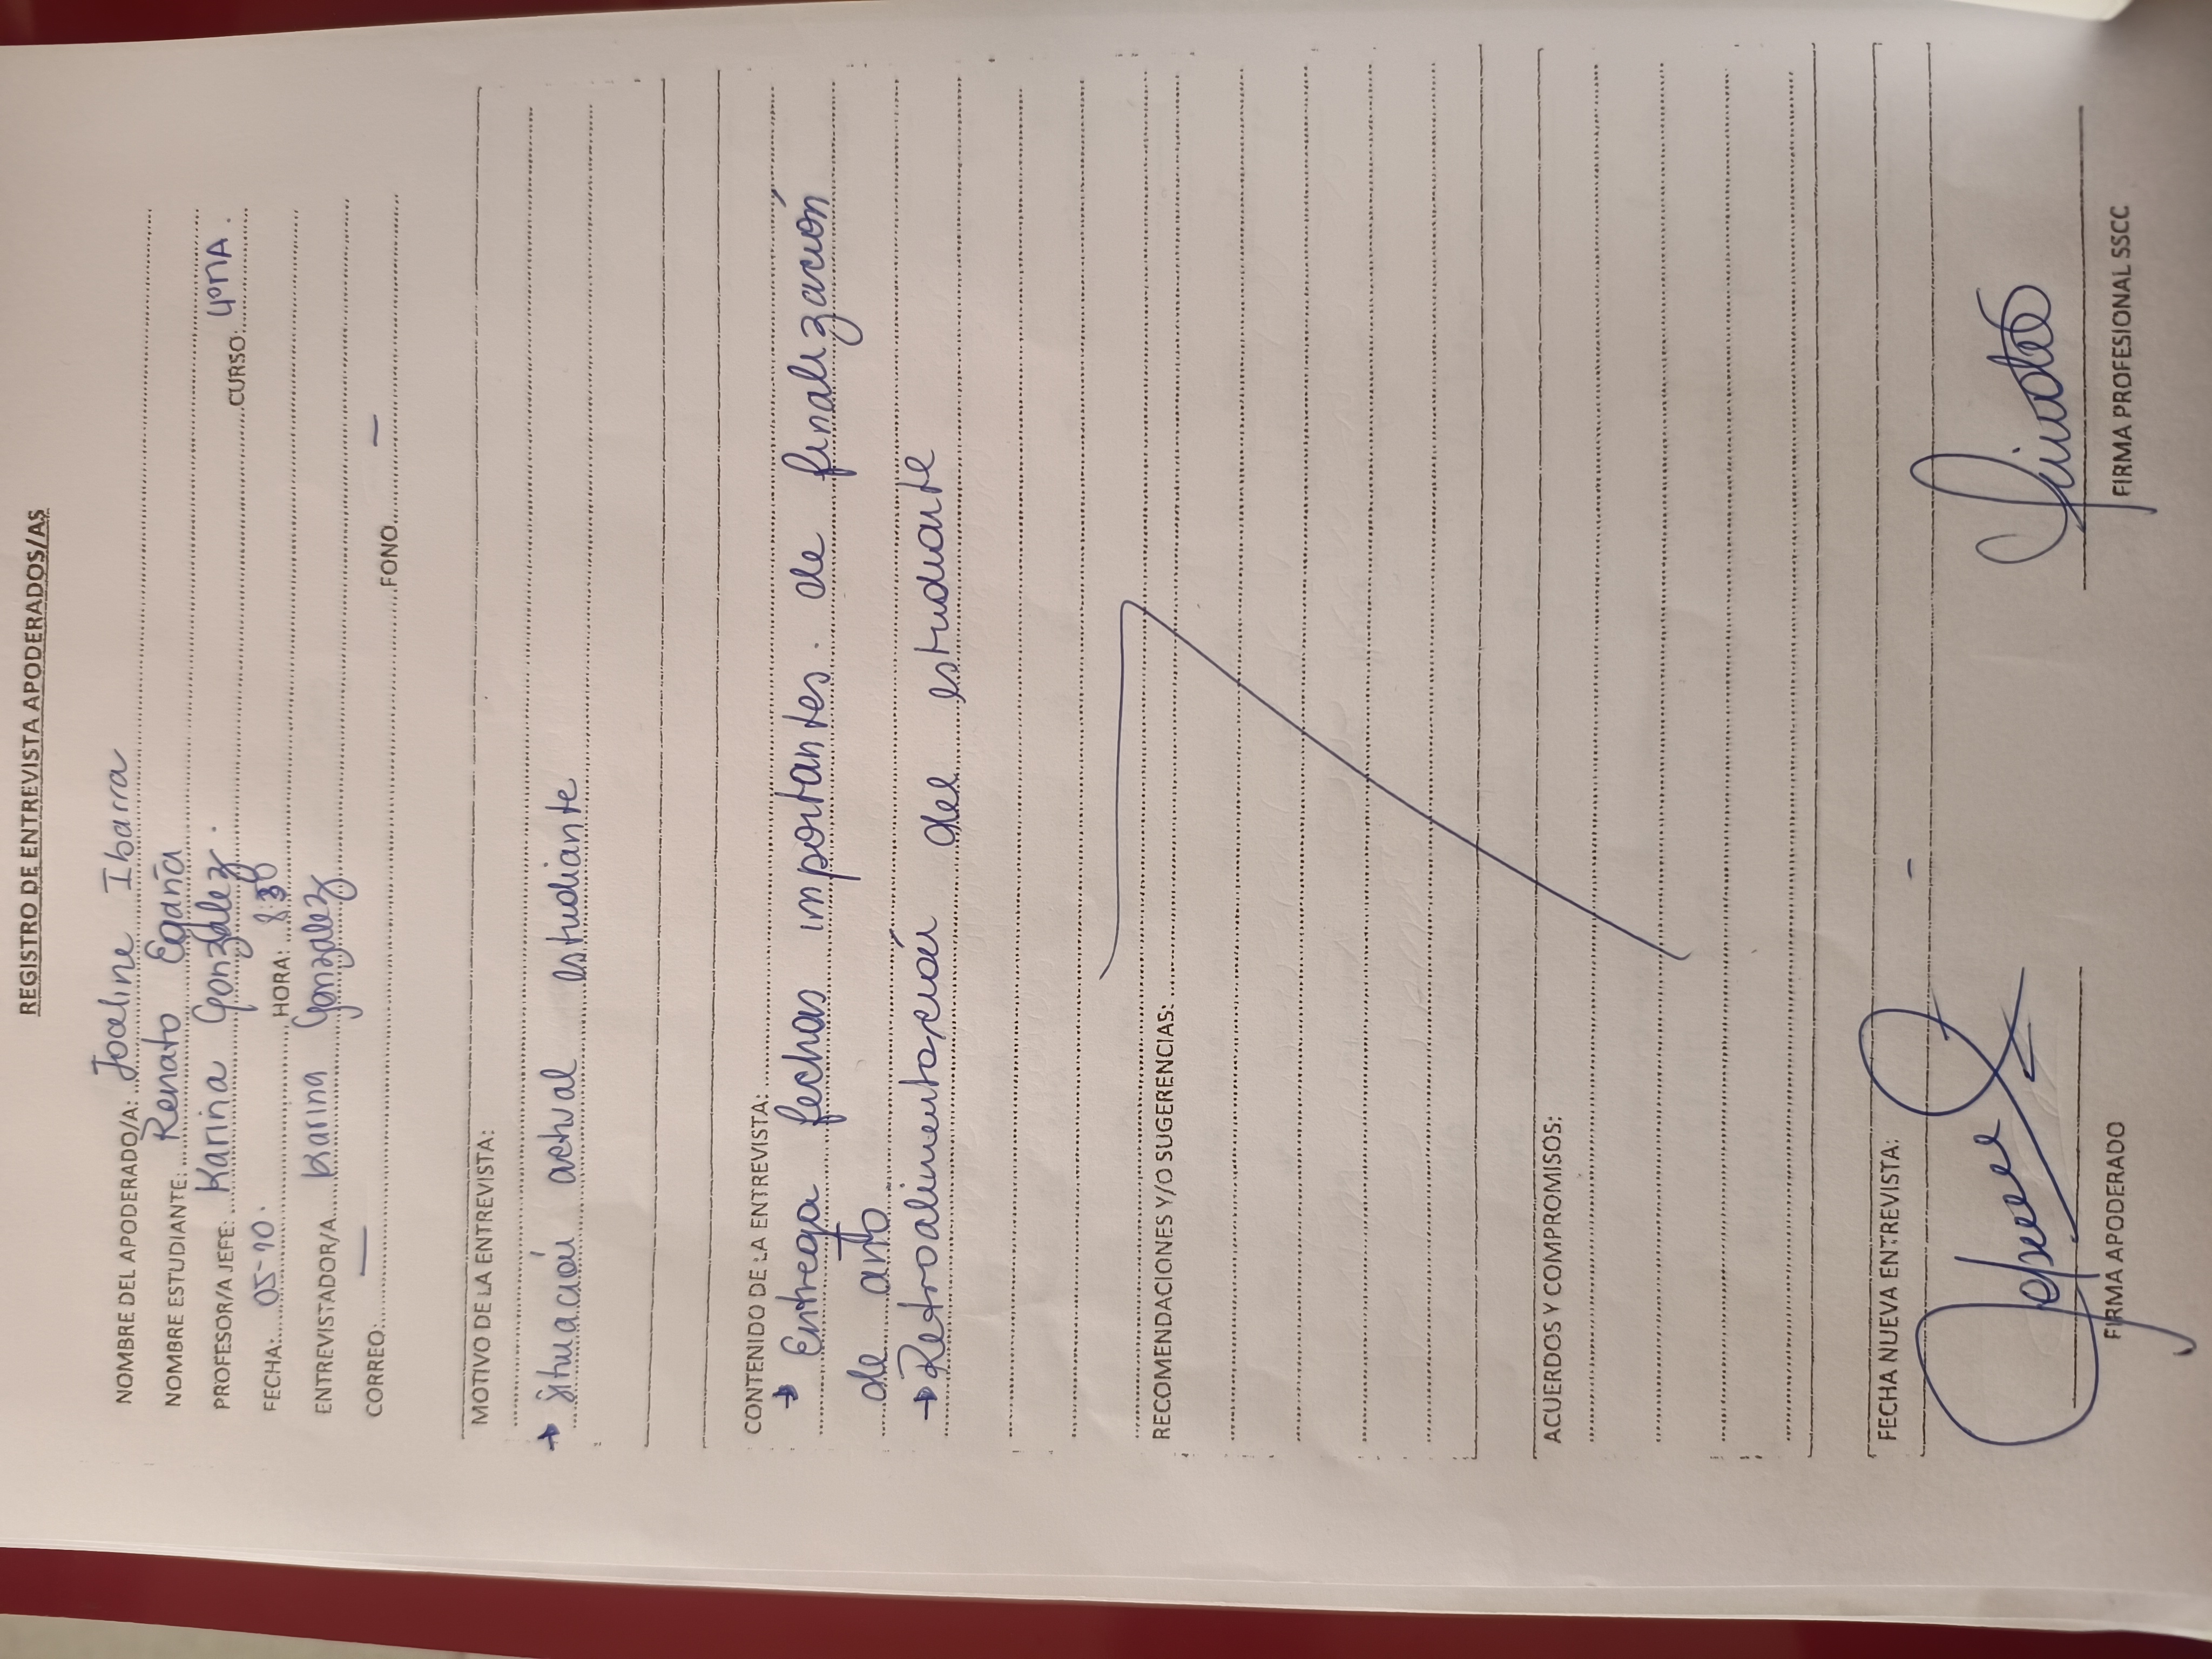 REGISTRO DE ENTREVISTA APODERADOS/AS
NOMBRE DEL APODERADO/A: Joceline Ibarra
NOMBRE ESTUDIANTE: Renato Egaña
PROFESOR/A JEFE: Karina Gonzalez. CURSO: 4ºMA.
FECHA: 05-10. HORA: 8:30
ENTREVISTADOR/A Karina Gonzalez
CORREO: — FONO —
MOTIVO DE LA ENTREVISTA:
→ situación actual estudiante
CONTENIDO DE LA ENTREVISTA:
→ Entrega fechas importantes. de finalización
de año
→ Retroalimentación del estudiante
RECOMENDACIONES Y/O SUGERENCIAS:
ACUERDOS Y COMPROMISOS:
FECHA NUEVA ENTREVISTA: -
FIRMA APODERADO FIRMA PROFESIONAL SSCC